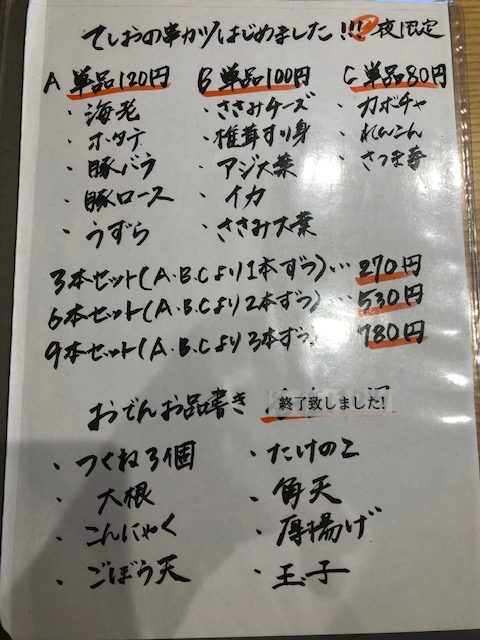 てしおの串カツはじめました!!! 夜限定
A 単品120円 B 単品100円 C 単品80円
・海老 ・ささみチーズ ・カボチャ
・ホタテ ・椎茸すり身 ・れんこん
・豚バラ ・アジ大葉 ・さつま芋
・豚ロース ・イカ
・うずら ・ささみ大葉
3本セット(A.B.Cより1本ずつ)… 270円
6本セット(A.B.Cより2本ずつ)… 530円
9本セット(A.B.Cより3本ずつ) 780円
おでんお品書き 終了致しました!
・つくね3個 ・たけのこ
・大根 ・角天
・こんにゃく ・厚揚げ
・ごぼう天 ・玉子